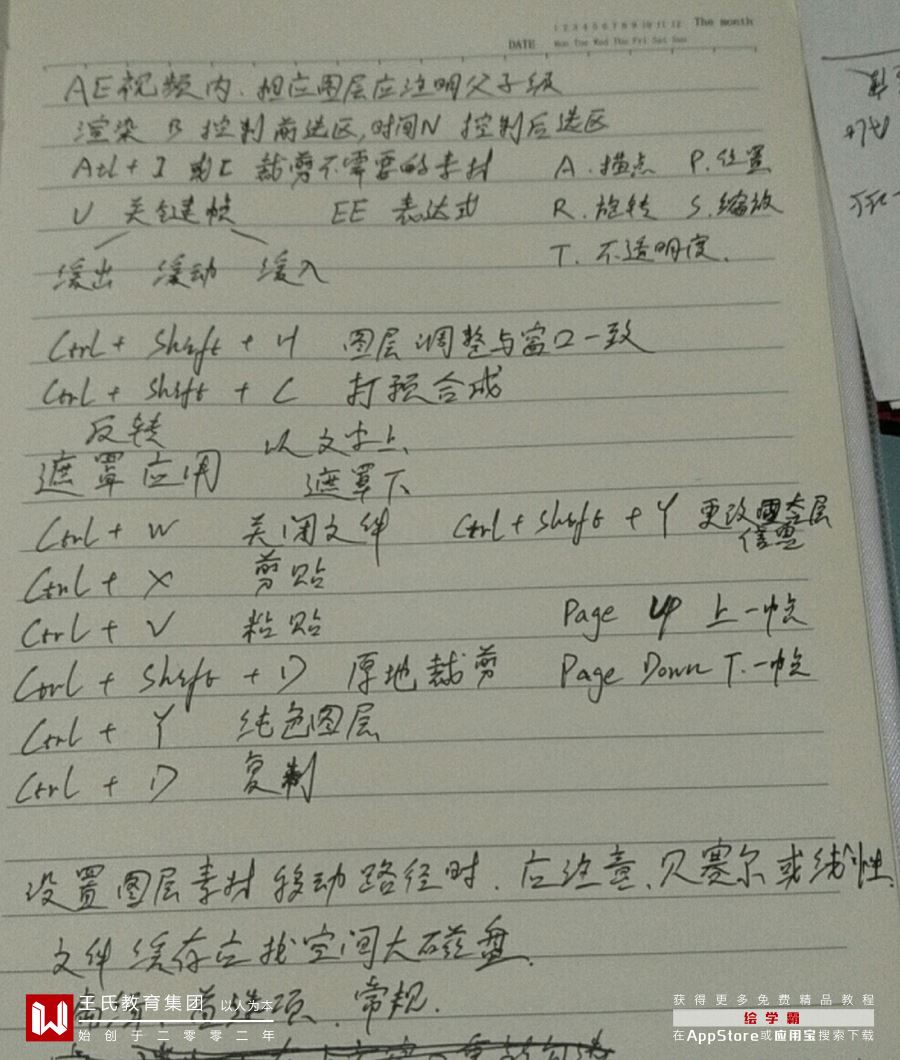 1 2 3 4 5 6 7 8 9 10 11 12 The month
DATE Mon Tue Wed Thu Fri Sat Sun
AE视频内.相应图层应注明父子级
渲染 B 控制前选区,时间N 控制后选区
Atl + I 或C 裁剪不需要的素材 A.描点 P.位置
U 关键帧 EE 表达式 R.旋转 S.缩放
缓出 缓动 缓入 T.不透明度.
Ctrl + Shift + H 图层调整与窗口一致
Ctrl + Shift + C 打预合成
反转 以文字上、
遮罩应用 遮罩下
Ctrl + W 关闭文件 Ctrl + Shift + Y 更改固态层
信息
Ctrl + X 剪贴
Ctrl + V 粘贴 Page up 上一帧
Ctrl + Shift + D 原地裁剪 Page Down 下.一帧
Ctrl + Y 纯色图层
Ctrl + D 复制
设置图层素材移动路径时.应注意、贝塞尔或线性.
文件缓存应找空间大磁盘.
首选项、常规.
王氏教育集团 以人为本
始创于二零零二年
获得更多免费精品教程
绘学霸
在AppStore或应用宝搜索下载